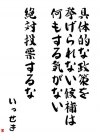 具体的な政策を
挙げられない候補は
何もする気がない
絶対投票するな
いっせき